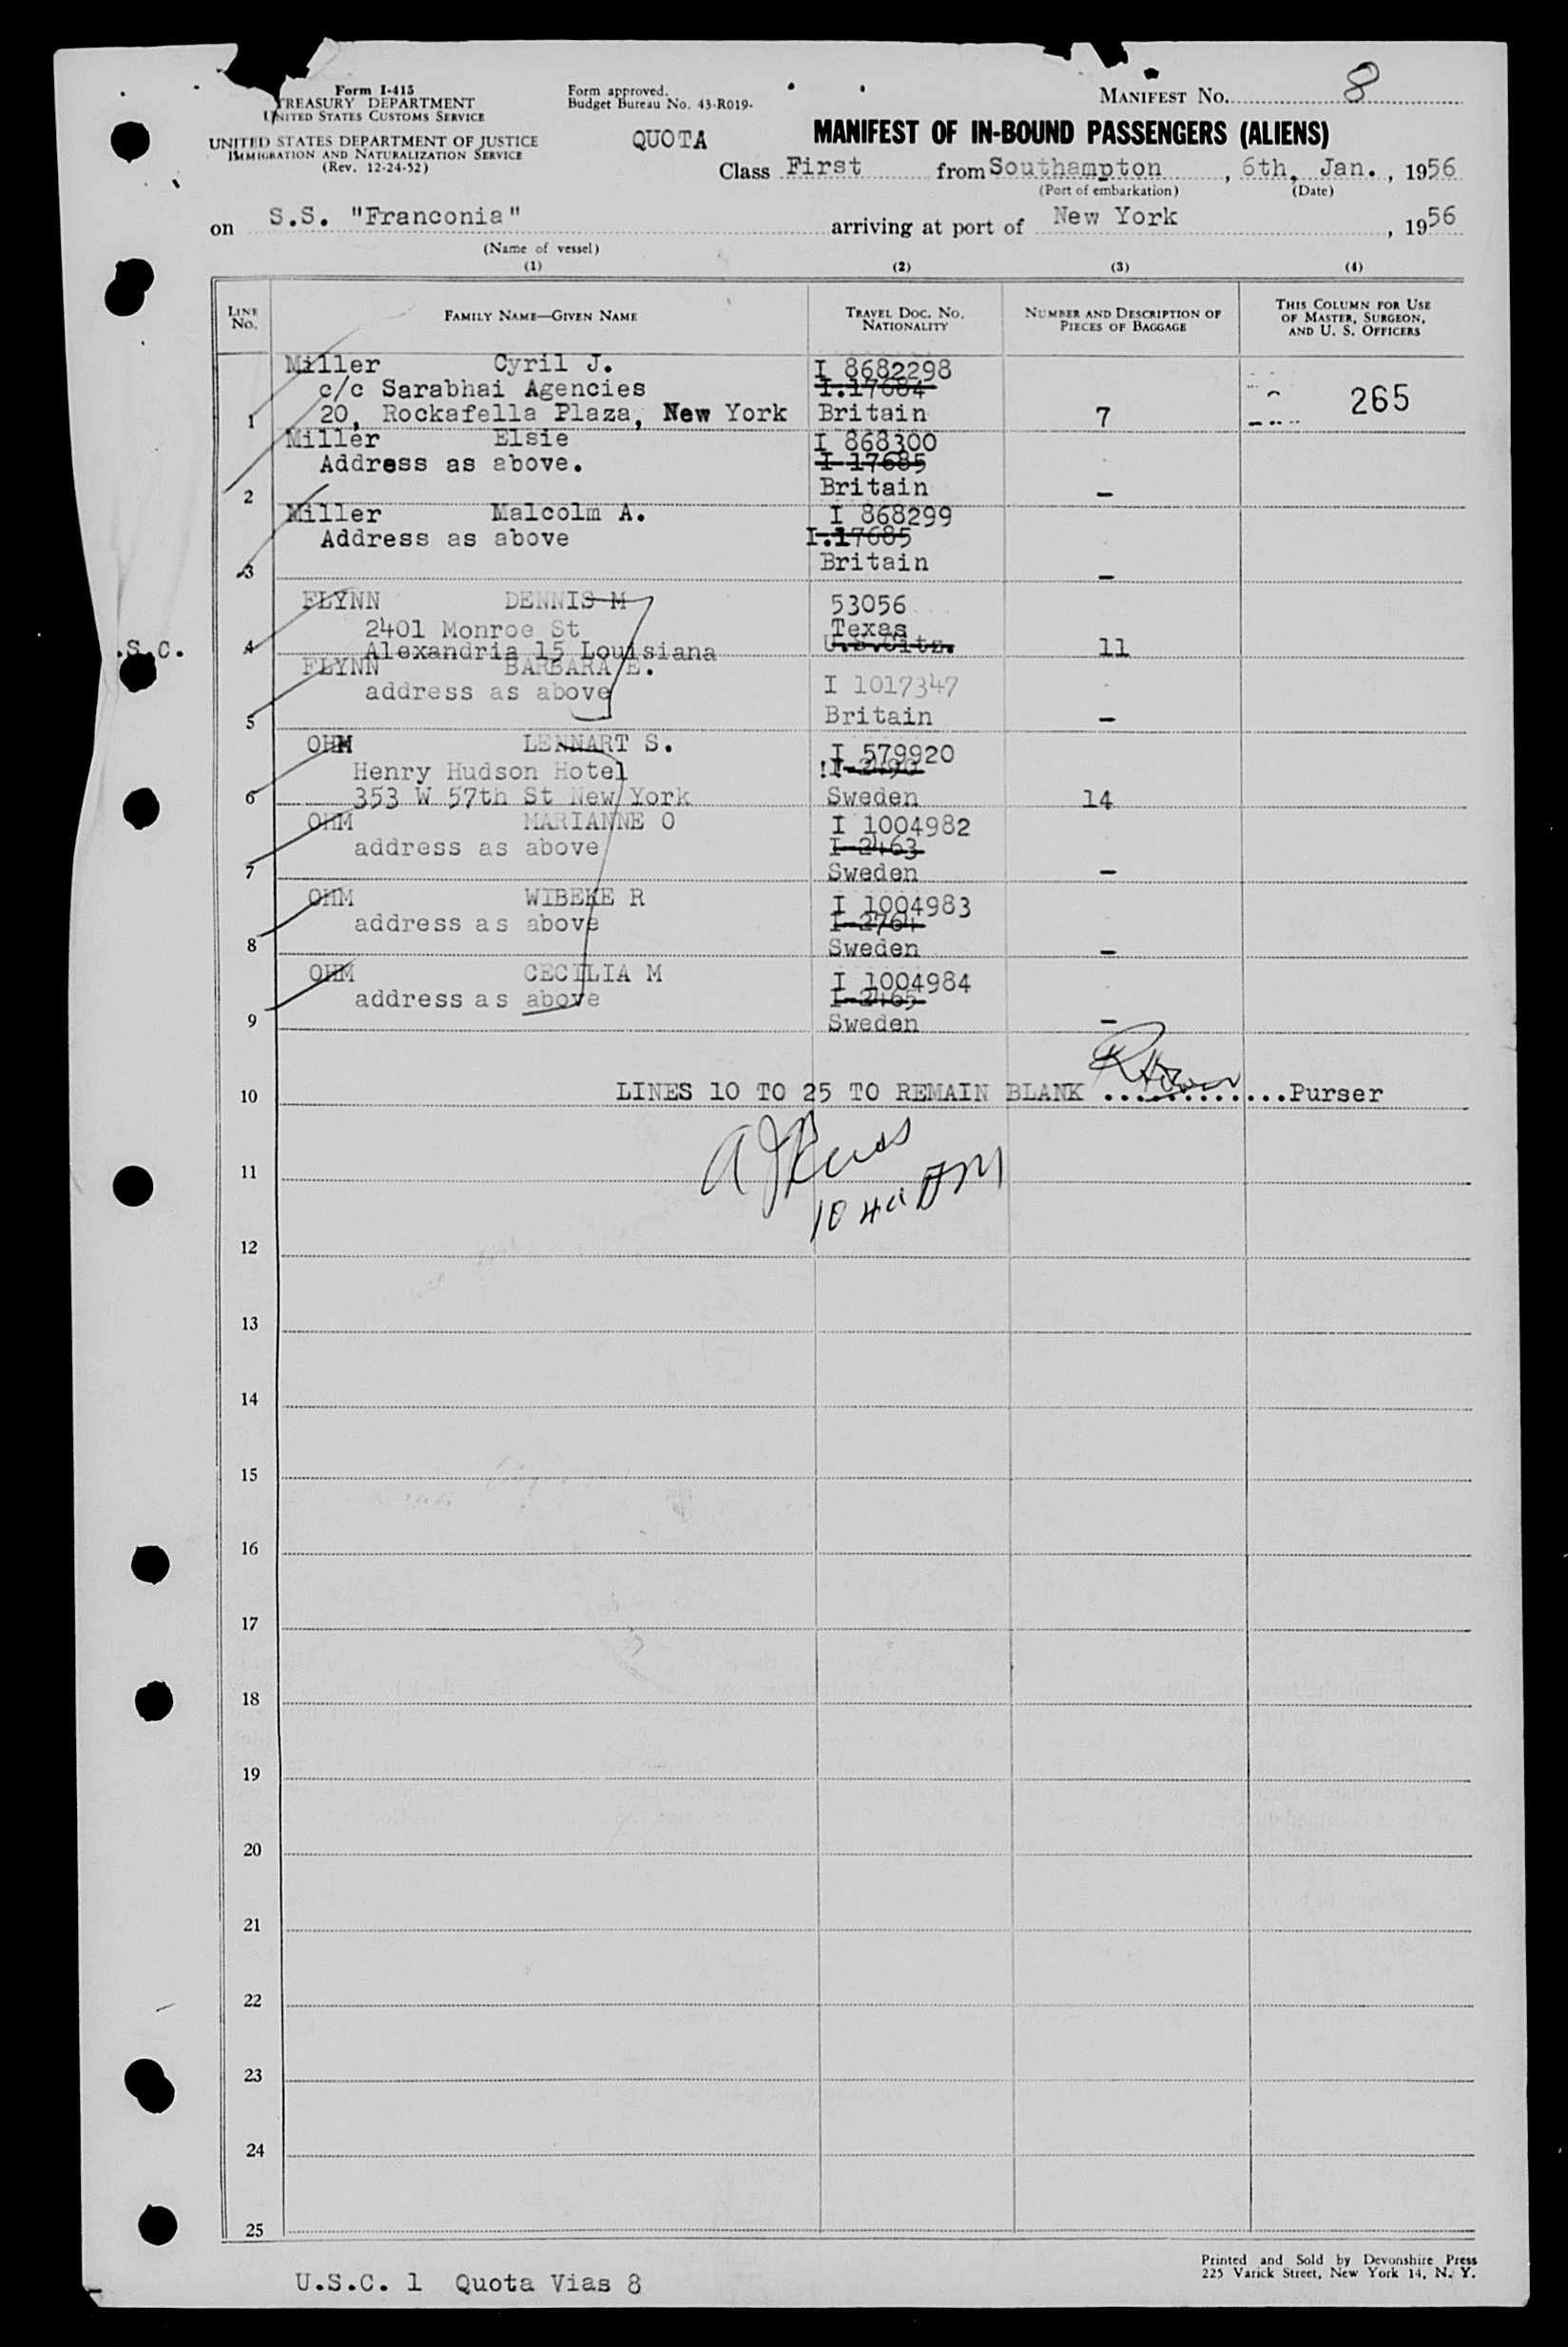 Form I-415
TREASURY DEPARTMENT
UNITED STATES CUSTOMS SERVICE
UNITED STATES DEPARTMENT OF JUSTICE
IMMIGRATION AND NATURALIZATION SERVICE
(Rev. 12-24-52)
Form approved.
Budget Bureau No. 43-R019-
QUOTA
MANIFEST NO. 8
MANIFEST OF IN-BOUND PASSENGERS (ALIENS)
Class First from Southampton, 6th, Jan., 1956
(Port of embarkation) (Date)
on S.S. "Franconia" arriving at port of New York, 1956
(Name of vessel)
(1) (2) (3) (4)
LINE NO.
FAMILY NAME—GIVEN NAME
TRAVEL DOC. NO. NATIONALITY
NUMBER AND DESCRIPTION OF PIECES OF BAGGAGE
THIS COLUMN FOR USE OF MASTER, SURGEON, AND U. S. OFFICERS
Miller Cyril J. I 8682298
c/c Sarabhai Agencies I.17684 265
1 20, Rockafella Plaza, New York Britain 7
Miller Elsie I 868300
Address as above. I 17685
2 Britain –
Miller Malcolm A. I 868299
Address as above I.17685
3 Britain –
FLYNN DENNIS M 53056
2401 Monroe St Texas
.S.C. 4 Alexandria 15 Louisiana U.S.Citz. 11
FLYNN BARBARA E.
address as above I 1017347
5 Britain –
OHM LENNART S. I 579920
Henry Hudson Hotel I-2490
6 353 W 57th St New York Sweden 14
OHM MARIANNE O I 1004982
address as above I-2463
7 Sweden –
OHM WIBEKE R I 1004983
address as above I-2764
8 Sweden –
OHM CECILIA M I 1004984
address as above I-2465
9 Sweden –
10 LINES 10 TO 25 TO REMAIN BLANK .............Purser
11
12
13
14
15
16
17
18
19
20
21
22
23
24
25
U.S.C. 1 Quota Vias 8
Printed and Sold by Devonshire Press
225 Varick Street, New York 14, N. Y.